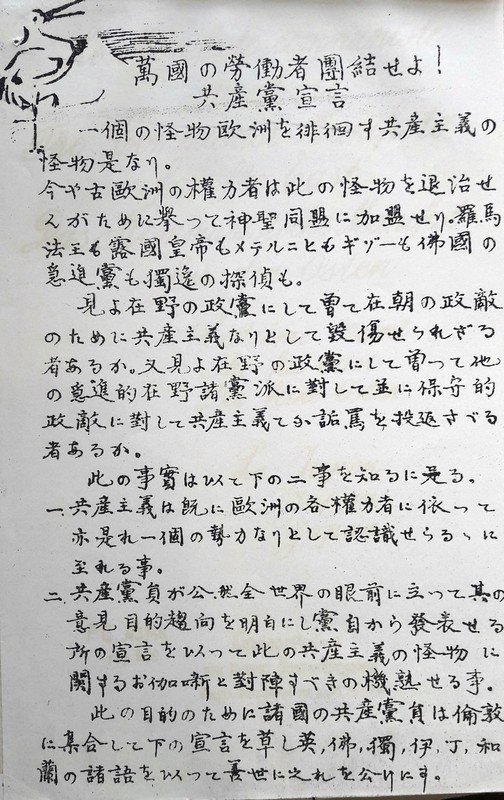 萬國の勞働者團結せよ!
共産黨宣言
一個の怪物歐洲を徘徊す共産主義の
怪物是なり。
今や古歐洲の權力者は此の怪物を退治せ
んがために擧って神聖同盟に加盟せり。羅馬
法王も露國皇帝もメテルニヒもギゾーも佛國の
急進黨も獨逸の探偵も。
見よ在野の政黨にして曾て在朝の政敵
のために共産主義なりとして毀傷せられざる
者あるか。又見よ在野の政黨にして曾って他
の急進的在野諸黨派に對して並に保守的
政敵に對して共産主義てか詬罵を投返さゞる
者あるか。
此の事實は以て下の二事を知るに足る。
一、共産主義は既に歐洲の各權力者に依って
亦是れ一個の勢力なりとして認識せらるゝに
至れる事。
二、共産黨員が公然全世界の眼前に立って其の
意見目的趨向を明白にし黨自から發表せる
所の宣言を以って此の共産主義の怪物に
関するお伽噺と對陣すべきの機熟せる事。
此の目的のために諸國の共産黨員は倫敦
に集合して下の宣言を草し英,佛,獨,伊,丁,和
蘭の諸語を以って普世に之れを公けにす。